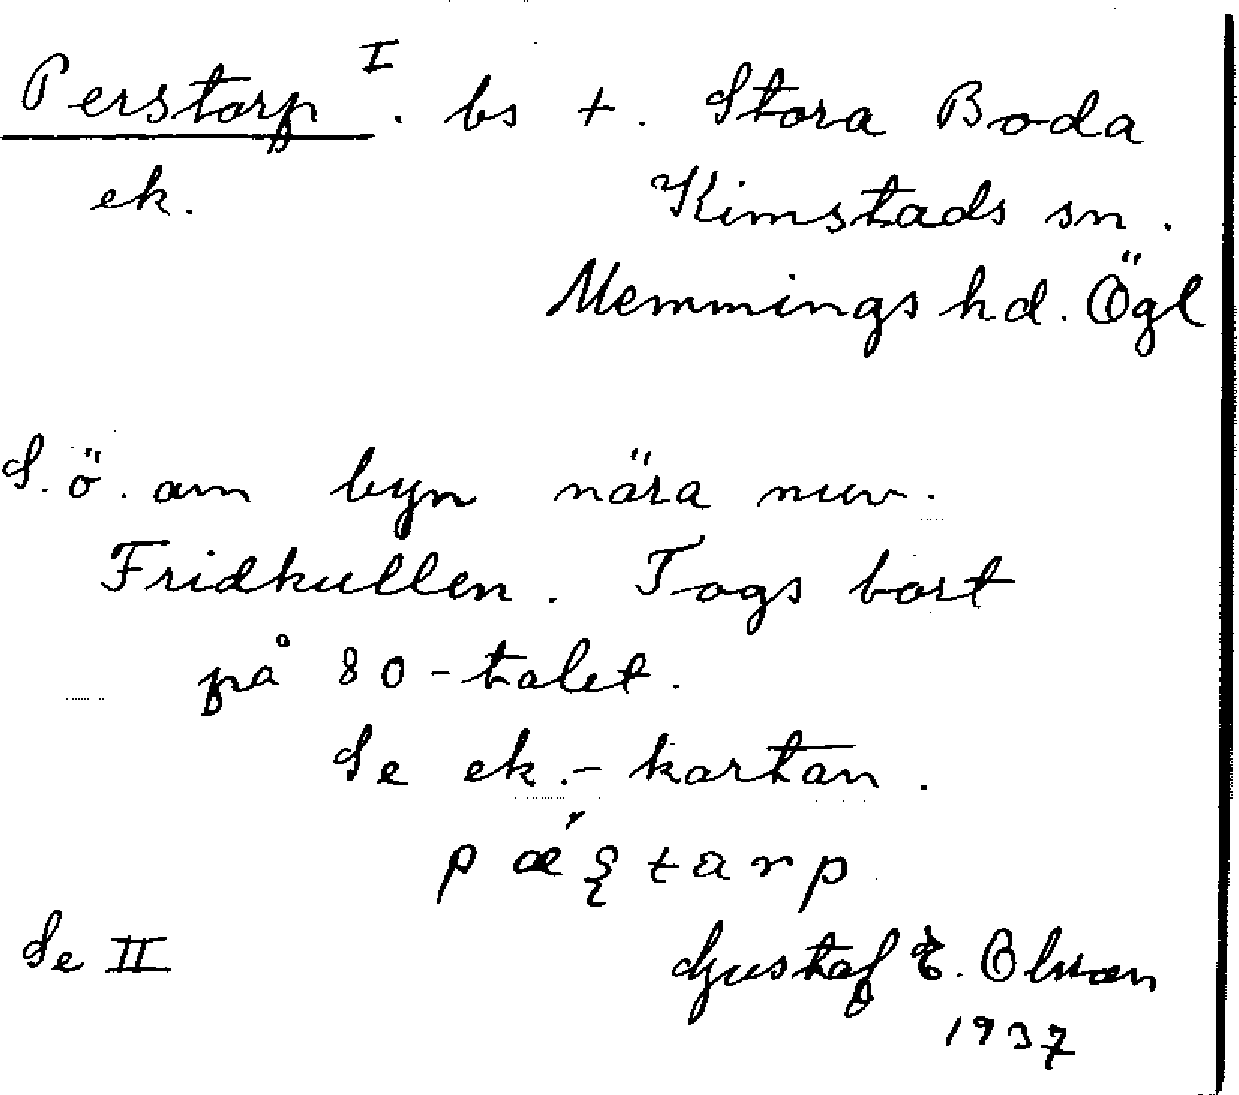 Perstorp I. bs +. Stora Boda
ek. Kimstads sn.
Memmings hd. Ögl
S.ö. om byn nära nuv.
Fridkullen. Togs bort
på 80-talet.
Se ek.-kartan.
pæ´ʂtarp
Se II Gustaf E. Olsson
1937